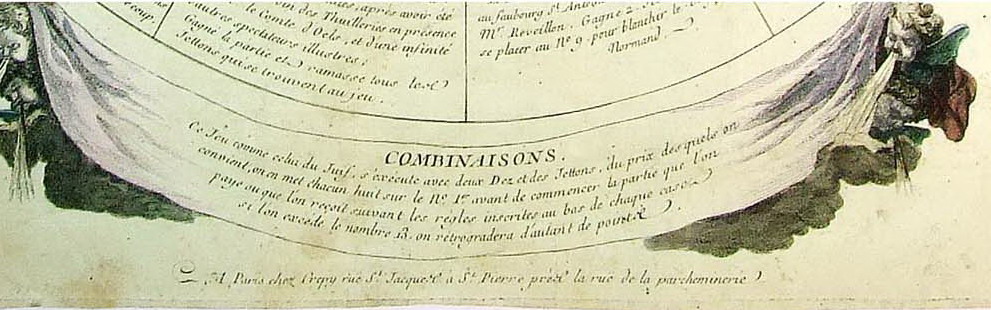 coup.
après avoir été
des Thuilleries en présence
le Comte d'Oels, et d'une infinité
d'autres spectateurs illustres;
Gagne la partie et ramasse tous les
Jettons qui se trouvent au jeu.
au faubourg St. Anto
Mr. Reveillon. Gagne 2
se placer au No 9 pour blanchir le
Normand.
COMBINAISONS.
Ce Jeu comme celui du Juif, s'exécute avec deux Dez et des Jettons, du prix des quels on
convient, on en met chacun huit sur le No. 1er avant de commencer la partie que l'on
paye ou que l'on reçoit suivant les règles inscrites au bas de chaque case
si l'on excède le nombre 13, on rétrogradera d'autant de points
A Paris chez Crepy rue St. Jacques à St. Pierre près la rue de la parcheminerie